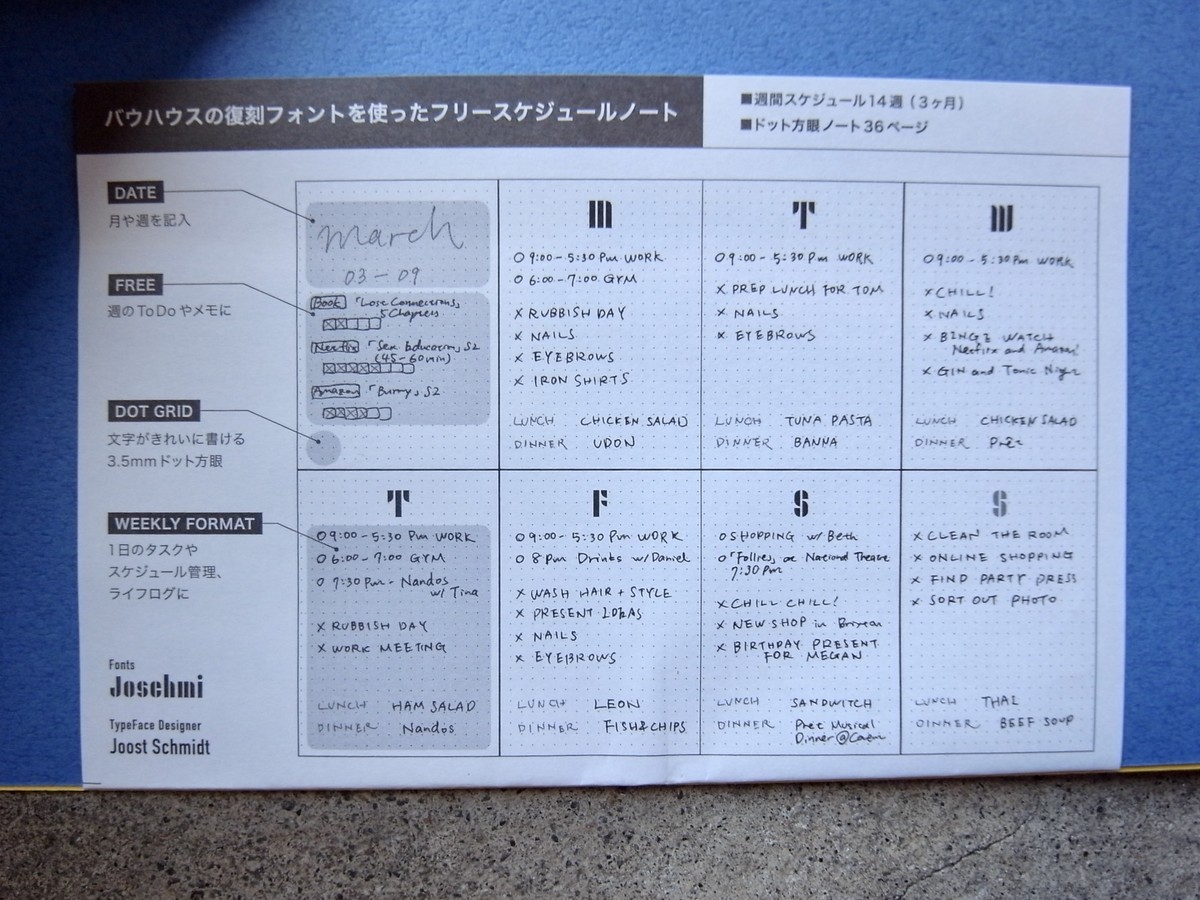 バウハウスの復刻フォントを使ったフリースケジュールノート
■週間スケジュール14週（3ヶ月）
■ドット方眼ノート36ページ
DATE
月や週を記入
FREE
週のToDoやメモに
DOT GRID
文字がきれいに書ける
3.5mmドット方眼
WEEKLY FORMAT
1日のタスクや
スケジュール管理、
ライフログに
Fonts
Joschmi
TypeFace Designer
Joost Schmidt
March
03 - 09
Book 「Lost Connections」
5 Chapters
Netflix 「Sex Education」S2
(45-60min)
Amazon 「Bunny」S2
M
O 9:00 - 5:30 Pm WORK
O 6:00 - 7:00 GYM
× RUBBISH DAY
× NAILS
× EYEBROWS
× IRON SHIRTS
LUNCH CHICKEN SALAD
DINNER UDON
T
O 9:00 - 5:30 Pm WORK
× PREP LUNCH FOR TOM
× NAILS
× EYEBROWS
LUNCH TUNA PASTA
DINNER BANNA
W
O 9:00 - 5:30 Pm WORK
× CHILL!
× NAILS
× BINGE WATCH
Netflix and Amazon!
× GIN and Tonic Night
LUNCH CHICKEN SALAD
DINNER
T
O 9:00 - 5:30 Pm WORK
O 6:00 - 7:00 GYM
O 7:30 Pm - Nandos
w/ Tina
× RUBBISH DAY
× WORK MEETING
LUNCH HAM SALAD
DINNER Nandos
F
O 9:00 - 5:30 Pm WORK
O 8 pm Drinks w/ Daniel
× WASH HAIR + STYLE
× PRESENT IDEAS
× NAILS
× EYEBROWS
LUNCH LEON
DINNER FISH & CHIPS
S
O SHOPPING w/ Beth
O 「Follies」 at National Theatre
7:30 Pm
× CHILL CHILL!
× NEW SHOP in
× BIRTHDAY PRESENT
FOR MEGAN
LUNCH SANDWITCH
DINNER Pret Musical
Dinner @
S
× CLEAN THE ROOM
× ONLINE SHOPPING
× FIND PARTY DRESS
× SORT OUT PHOTO
LUNCH THAI
DINNER BEEF SOUP